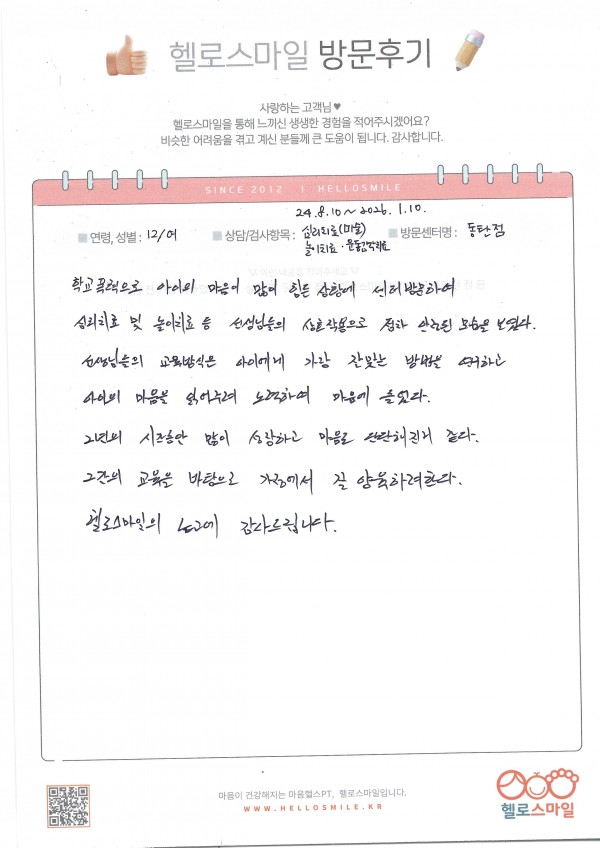 헬로스마일 방문후기
사랑하는 고객님♥
헬로스마일을 통해 느끼신 생생한 경험을 적어주시겠어요?
비슷한 어려움을 겪고 계신 분들께 큰 도움이 됩니다. 감사합니다.
SINCE 2012 I HELLOSMILE
24.8.10~2026.1.10.
연령, 성별 : 12/여 상담/검사항목 : 심리치료(미술) 방문센터명 : 동탄점
놀이치료·운동감각치료
학교폭력으로 아이의 마음이 많이 힘든 상황에 센터방문하여
심리치료 및 놀이치료 등 선생님들의 상호작용으로 점차 안정된 모습을 보였다.
선생님들의 교육방식은 아이에게 가장 잘맞는 방법을 연구하고
아이의 마음을 읽어주려 노력하여 마음에 들었다.
그년의 시간동안 많이 성장하고 마음도 단단해진거 같다.
그간의 교육을 바탕으로 가정에서 잘 양육하려한다.
헬로스마일의 노고에 감사드립니다.
마음이 건강해지는 마음헬스PT, 헬로스마일입니다.
WWW.HELLOSMILE.KR
헬로스마일